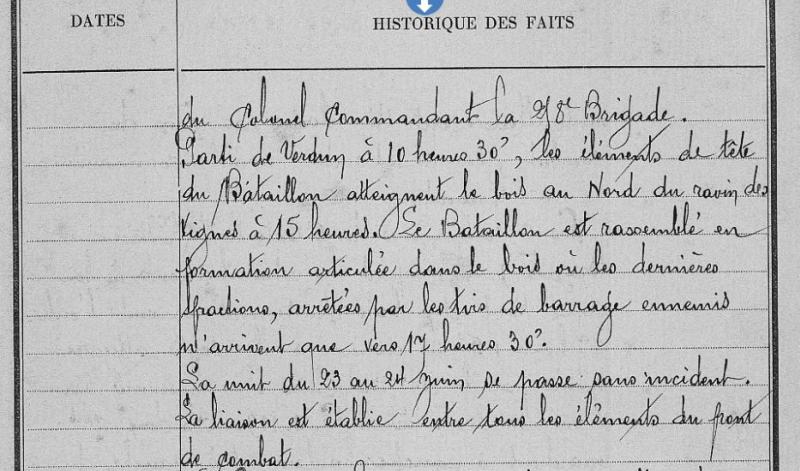 DATES
HISTORIQUE DES FAITS
du Colonel Commandant la 278e Brigade.
Parti de Verdun à 10 heures 30', les éléments de tête
du Bataillon atteignent le bois au Nord du ravin des
Vignes à 15 heures. Le Bataillon est rassemblé en
formation articulée dans le bois où les dernières
fractions, arrêtées par les tirs de barrage ennemis
n'arrivent que vers 17 heures 30'.
La nuit du 23 au 24 Juin se passe sans incident.
La liaison est établie entre tous les éléments du front
de combat.